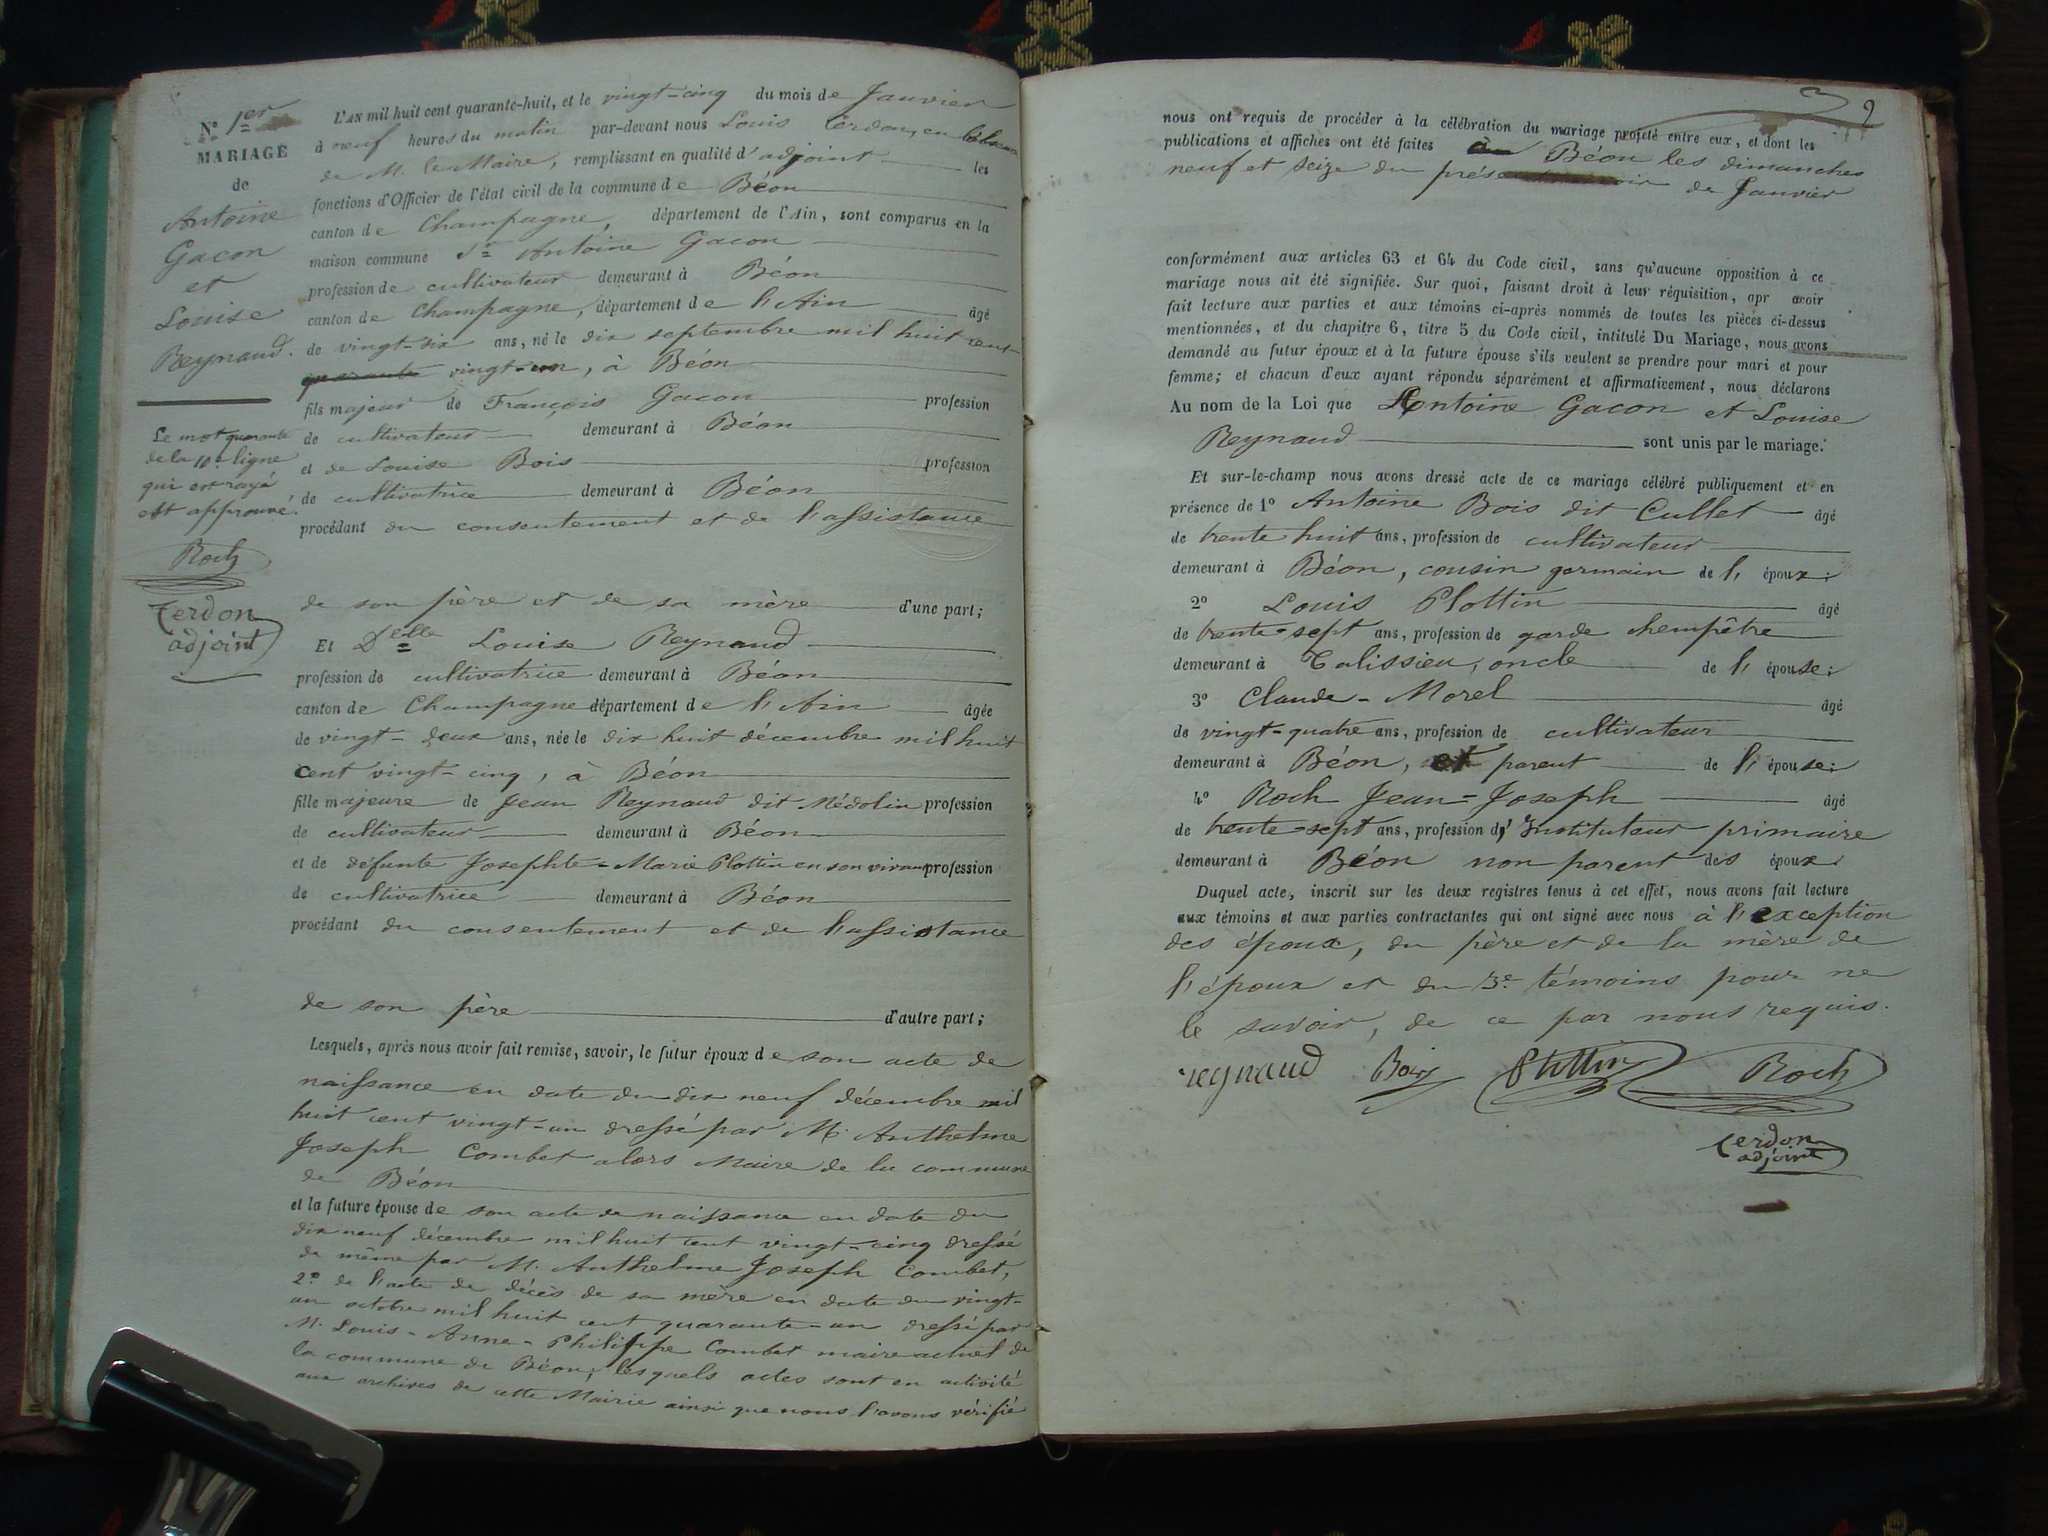 N° 1er
MARIAGE
de
Antoine
Gacon
et
Louise
Reynaud.
Le mot quarante
de la 10e ligne
qui est rayé
est approuvé.
Roch
Cerdon
adjoint
L'AN mil huit cent quarante-huit, et le vingt-cinq du mois de Janvier
à neuf heures du matin par-devant nous Louis Cerdon, en l'absence
de M. le Maire, remplissant en qualité d'adjoint les
fonctions d'Officier de l'état civil de la commune de Béon
canton de Champagne, département de l'Ain, sont comparus en la
maison commune Sr Antoine Gacon
profession de cultivateur demeurant à Béon
canton de Champagne, département de l'Ain âgé
de vingt-six ans, né le dix septembre mil huit cent
quarante vingt-un, à Béon
fils majeur de François Gacon profession
de cultivateur demeurant à Béon
et de Louise Bois profession
de cultivatrice demeurant à Béon
procédant du consentement et de l'assistance
de son père et de sa mère d'une part;
Et Delle Louise Reynaud
profession de cultivatrice demeurant à Béon
canton de Champagne département de l'Ain âgée
de vingt-deux ans, née le dix huit décembre mil huit
cent vingt-cinq, à Béon
fille majeure de Jean Reynaud dit Médolin profession
de cultivateur demeurant à Béon
et de défunte Josephte-Marie Plottin en son vivant profession
de cultivatrice demeurant à Béon
procédant du consentement et de l'assistance
de son père d'autre part;
Lesquels, après nous avoir fait remise, savoir, le futur époux de son acte de
naissance en date du dix neuf décembre mil
huit cent vingt-un dressé par M. Anthelme
Joseph Combet alors Maire de la commune
de Béon
et la future épouse de son acte de naissance en date du
dix neuf décembre mil huit cent vingt-cinq dressé
de même par M. Anthelme Joseph Combet,
2° de l'acte de décès de sa mère en date du vingt-
un octobre mil huit cent quarante-un dressé par
M. Louis-Anne-Philippe Combet maire actuel de
la commune de Béon, lesquels actes sont en activité
aux archives de cette Mairie ainsi que nous l'avons vérifié
2
nous ont requis de procéder à la célébration du mariage projeté entre eux, et dont les
publications et affiches ont été faites à Béon les dimanches
neuf et seize du présent mois de Janvier
conformément aux articles 63 et 64 du Code civil, sans qu'aucune opposition à ce
mariage nous ait été signifiée. Sur quoi, faisant droit à leur réquisition, apr avoir
fait lecture aux parties et aux témoins ci-après nommés de toutes les pièces ci-dessus
mentionnées, et du chapitre 6, titre 5 du Code civil, intitulé Du Mariage, nous avons
demandé au futur époux et à la future épouse s'ils veulent se prendre pour mari et pour
femme; et chacun d'eux ayant répondu séparément et affirmativement, nous déclarons
Au nom de la Loi que Antoine Gacon et Louise
Reynaud sont unis par le mariage.
Et sur-le-champ nous avons dressé acte de ce mariage célébré publiquement et en
présence de 1° Antoine Bois dit Cullet âgé
de trente huit ans, profession de cultivateur
demeurant à Béon, cousin germain de l'époux;
2° Louis Plottin âgé
de trente-sept ans, profession de garde chempêtre
demeurant à Talissieu, oncle de l'épouse;
3° Claude-Morel âgé
de vingt-quatre ans, profession de cultivateur
demeurant à Béon, et parent de l'épouse;
4° Roch Jean-Joseph âgé
de trente-sept ans, profession d'Instituteur primaire
demeurant à Béon non parent des époux.
Duquel acte, inscrit sur les deux registres tenus à cet effet, nous avons fait lecture
aux témoins et aux parties contractantes qui ont signé avec nous à l'exception
des époux, du père et de la mère de
l'époux et du 3e témoins pour ne
le savoir, de ce par nous requis.
reynaud Bois Plottin Roch
Cerdon
adjoint